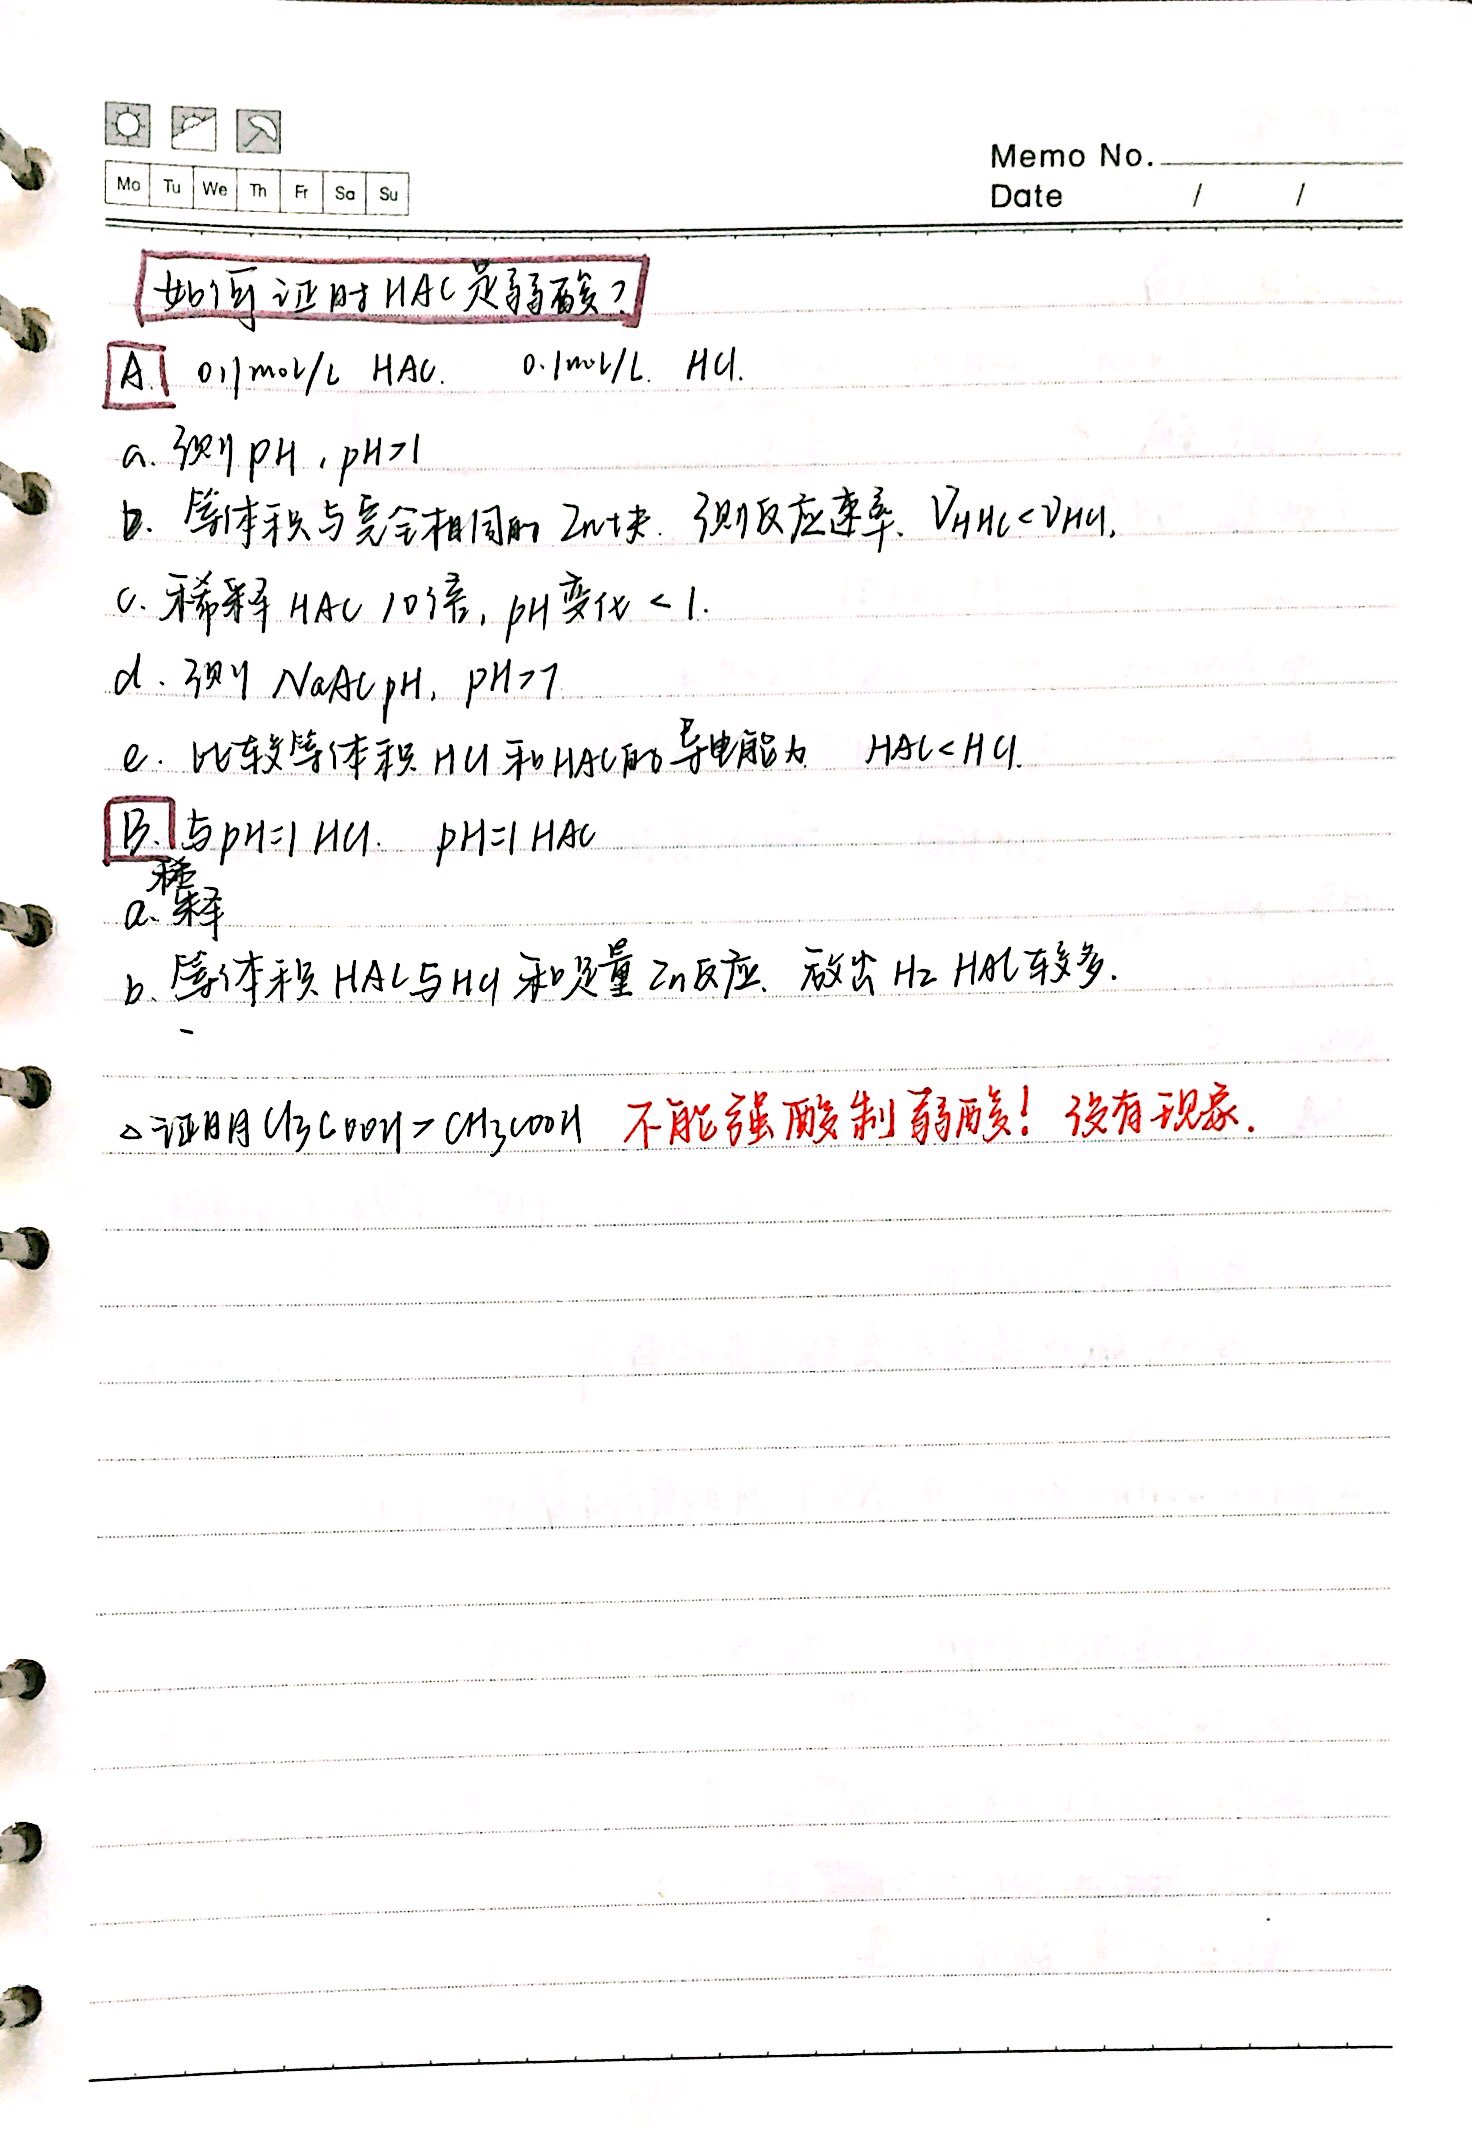 Mo Tu We Th Fr Sa Su
Memo No.
Date / /
如何证明HAC是弱酸?
A. 0.1mol/L HAC. 0.1mol/L. HCl.
a. 测pH, pH>1
b. 等体积与完全相同的Zn块. 测反应速率. VHAC<VHCl.
c. 稀释HAC 10倍, pH变化<1.
d. 测NaAC pH, pH>7
e. 比较等体积HCl和HAC的导电能力 HAC<HCl.
B. 与pH=1 HCl. pH=1 HAC
a. 稀释
b. 等体积HAC与HCl和足量Zn反应. 放出H2 HAC较多.
△证明CH3COOH>CH3COOH 不能强酸制弱酸! 没有现象.